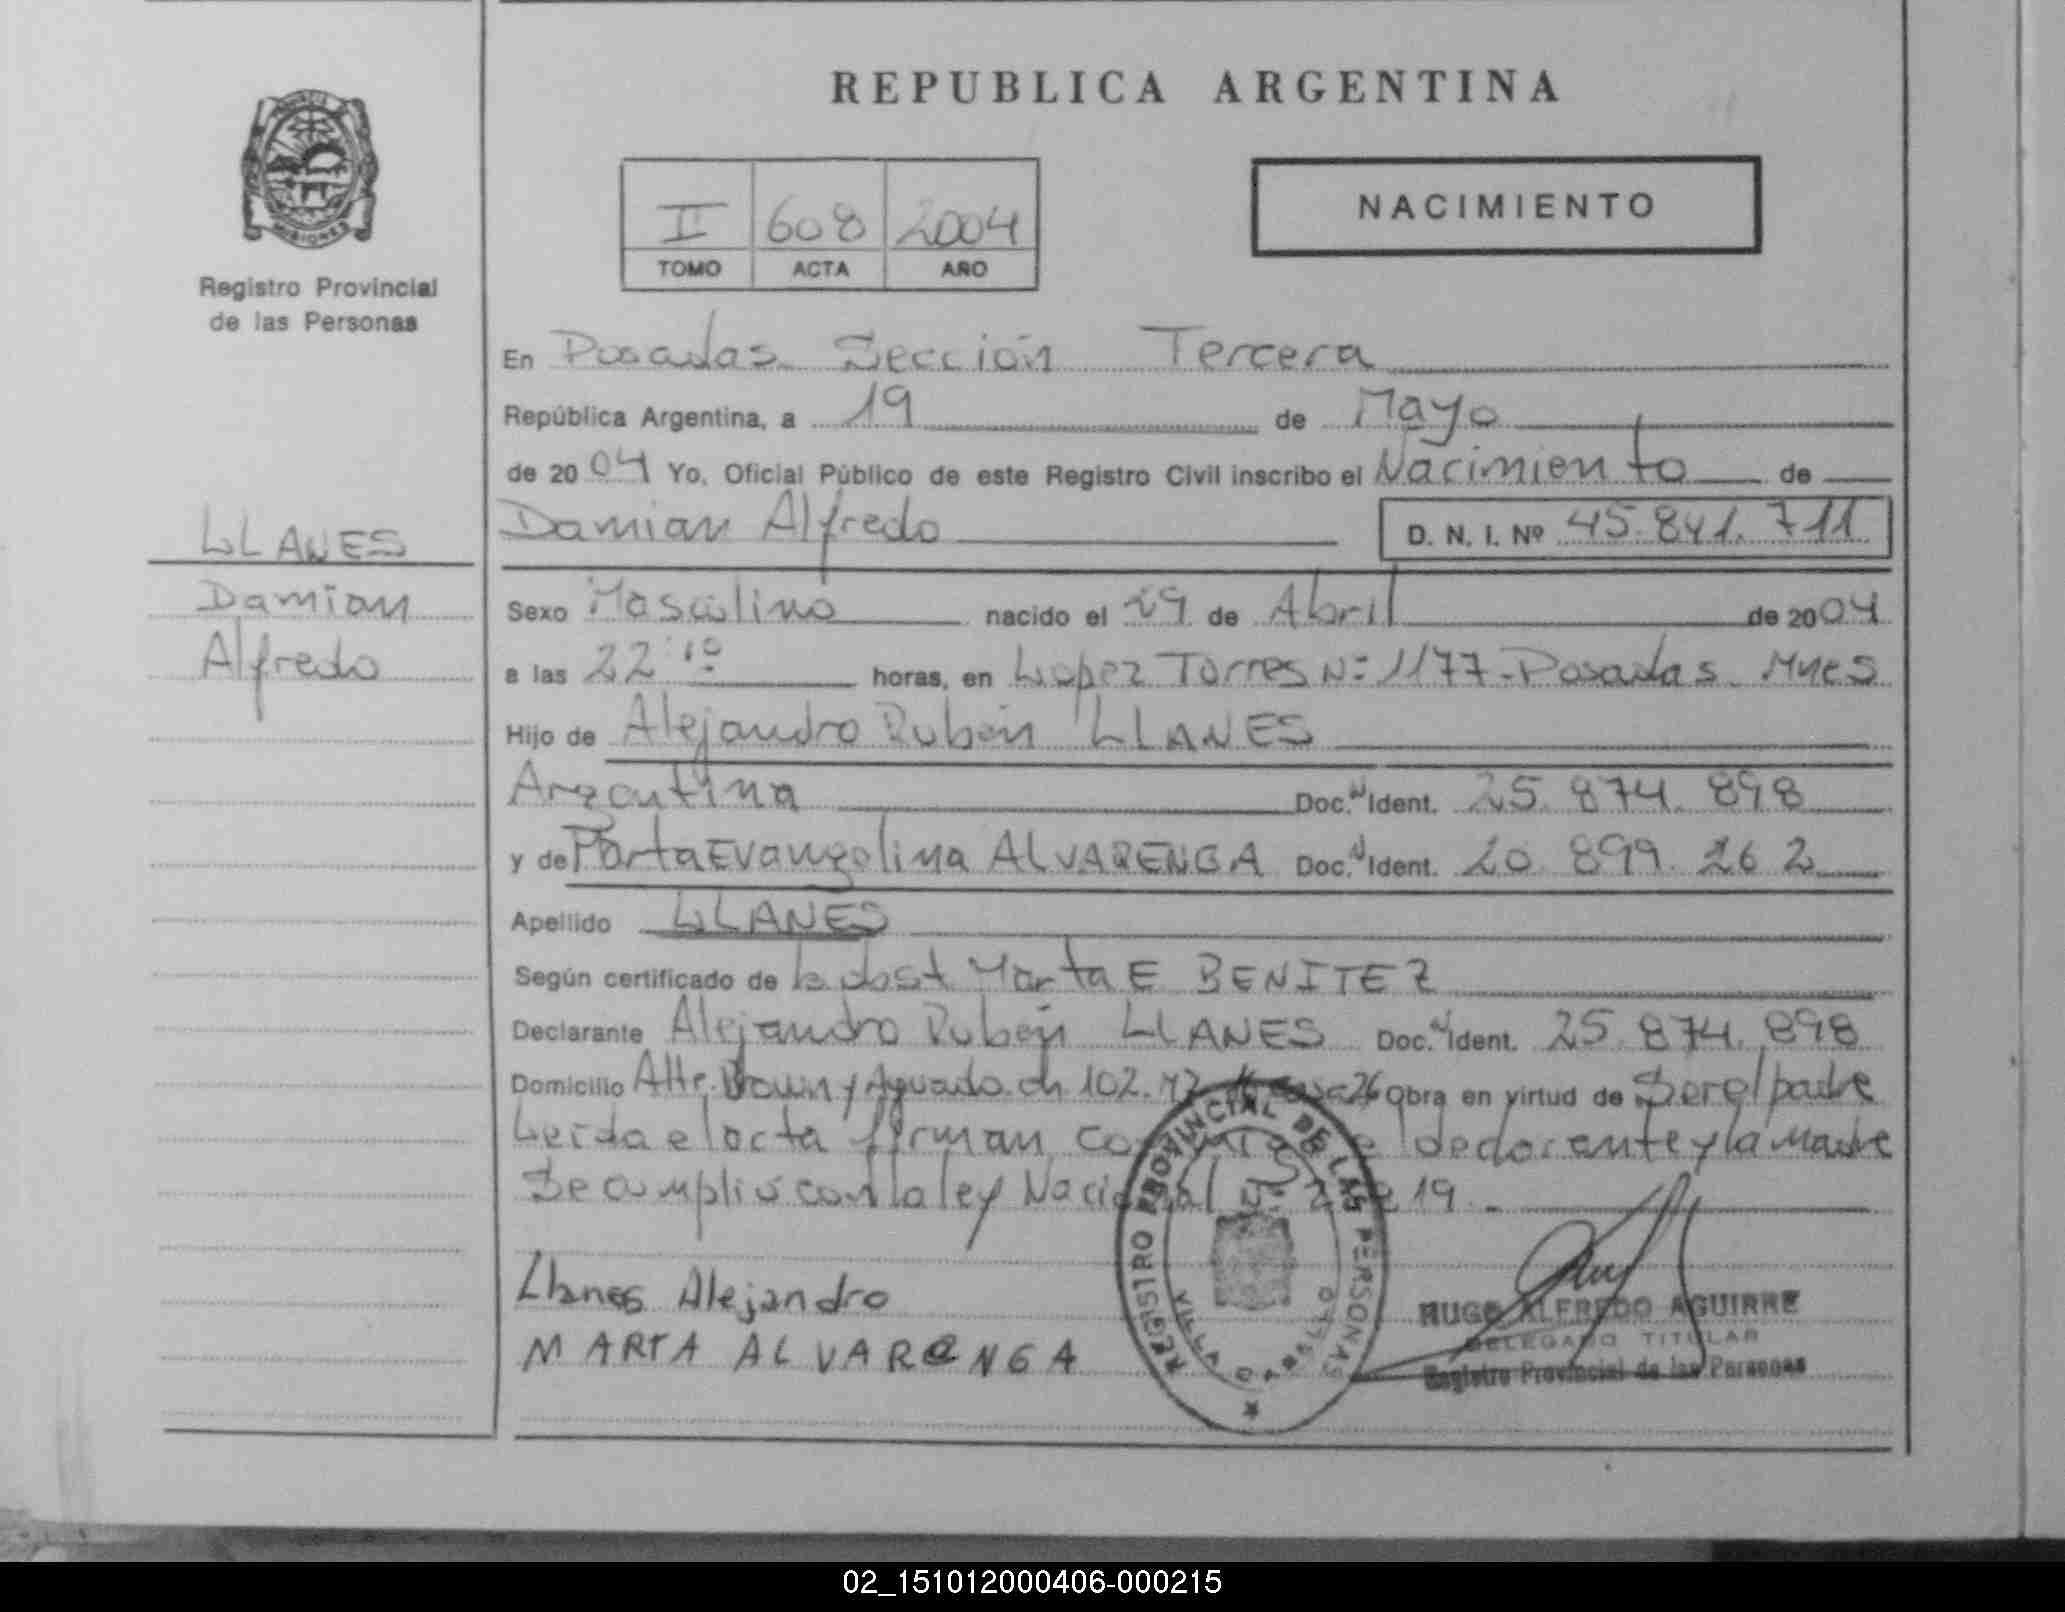 REPUBLICA ARGENTINA
MISIONES
Registro Provincial
de las Personas
II 608 2004
TOMO ACTA AÑO
NACIMIENTO
En Posadas Sección Tercera
República Argentina, a 19 de Mayo
de 2004 Yo, Oficial Público de este Registro Civil inscribo el Nacimiento de
Damian Alfredo D. N. I. Nº 45.841.711
LLANES
Damian
Alfredo
Sexo Masculino nacido el 29 de Abril de 2004
a las 22 10 horas, en Lopez Torres Nº 1177-Posadas Mnes
Hijo de Alejandro Rubén LLANES
Argentina Doc. Ident. 25.874.898
y de Marta Evangelina ALVARENGA Doc. Ident. 20.899.262
Apellido LLANES
Según certificado de la obst Marta E BENITEZ
Declarante Alejandro Rubén LLANES Doc. Ident. 25.874.898
Domicilio Alte. Brown y Aguado ch 102. 26 Obra en virtud de Ser el padre
Leida el acta firman el declarante y la madre
Se cumplió con la ley Nacional 19.-
Llanes Alejandro
MARTA ALVARENGA
REGISTRO PROVINCIAL DE LAS PERSONAS
VILLA CABELLO
HUGO ALFREDO AGUIRRE
DELEGADO TITULAR
Registro Provincial de las Personas
02_151012000406-000215